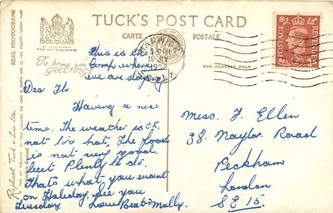 TUCK'S POST CARD
CARTE POSTALE
REAL PHOTOGRAPH
To bring you
greetings
This is the
Camp where
we are staying
1952
Dear Flo.
Having a nice
time. The weather is O.K.
not too hot, The food
is not very good
Plenty
thats what you want
on Holiday, see you
Tuesday Love Beat & Molly.
Miss. F. Ellen
38. Naylor Road
Peckham
London
S.E 15.